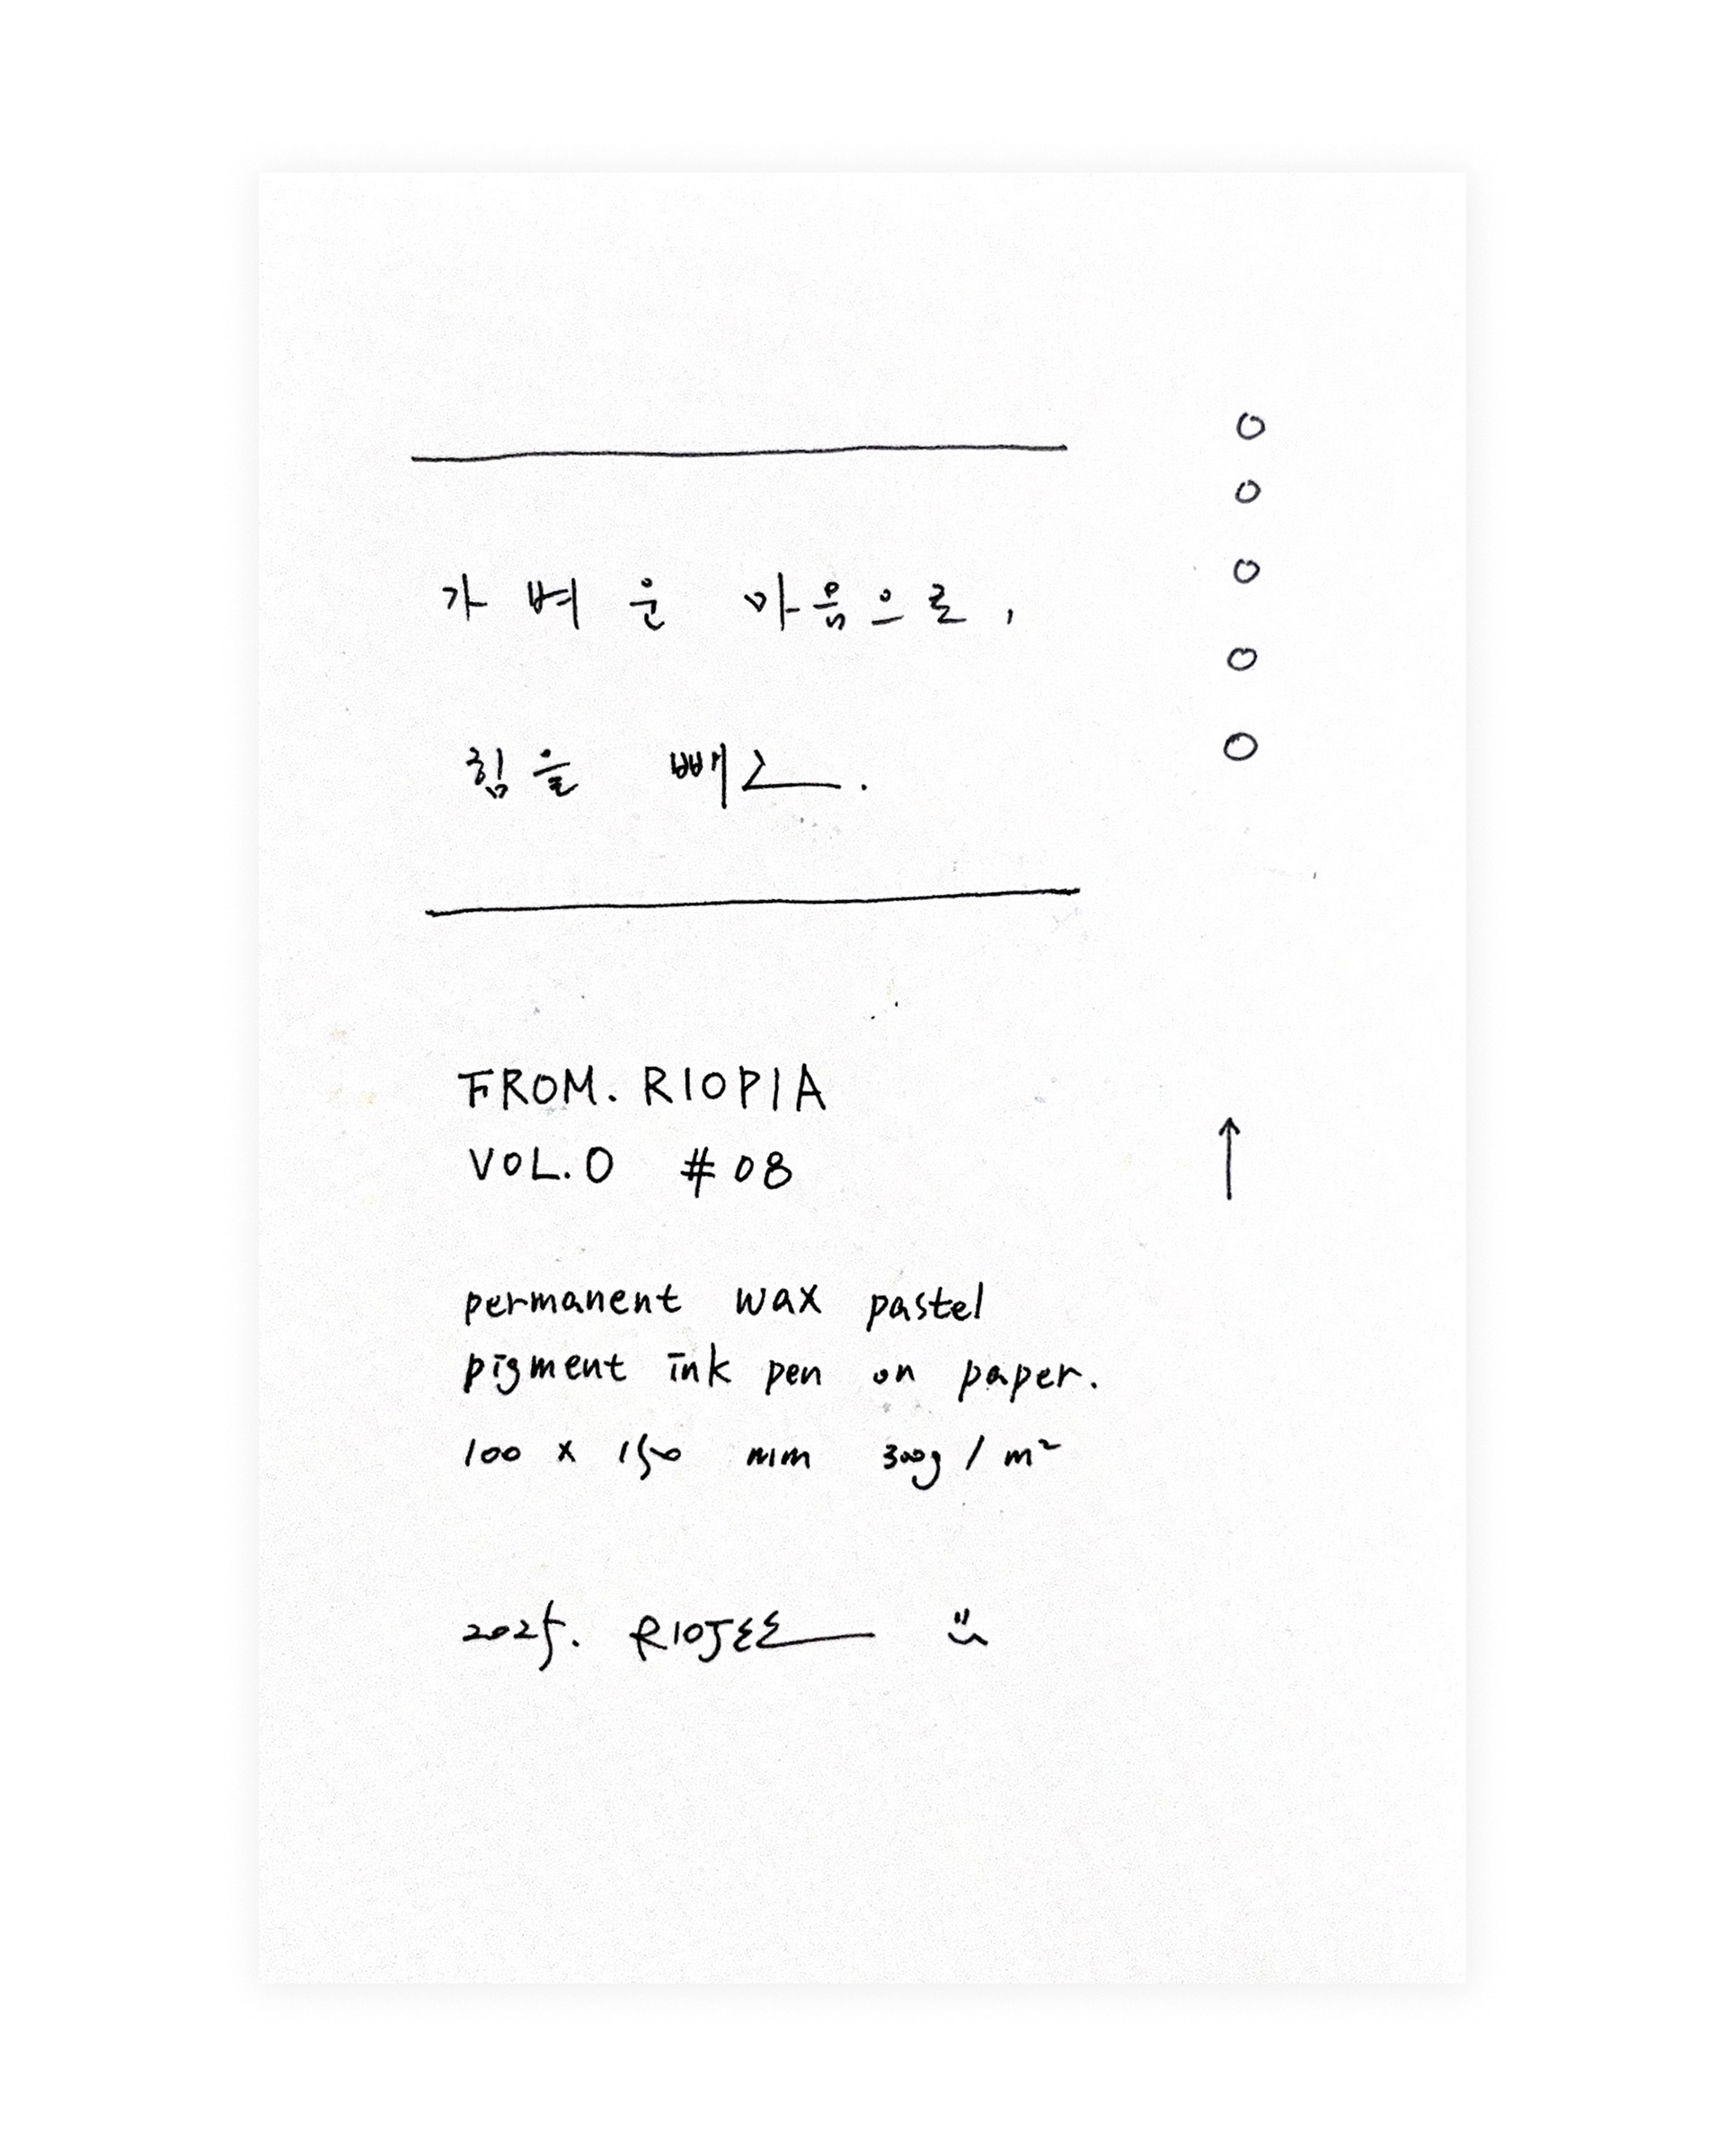 가벼운 마음으로,
힘을 빼고.
FROM. RIOPIA
VOL.0 #08
permanent wax pastel
pigment ink pen on paper.
100 x 150 mm 300g / m²
2025. RIOJEE